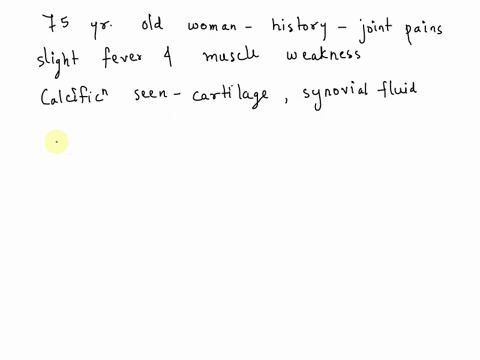 75 yr. old woman - history - joint pains
slight fever & muscle weakness
Calcificⁿ seen - cartilage, synovial fluid